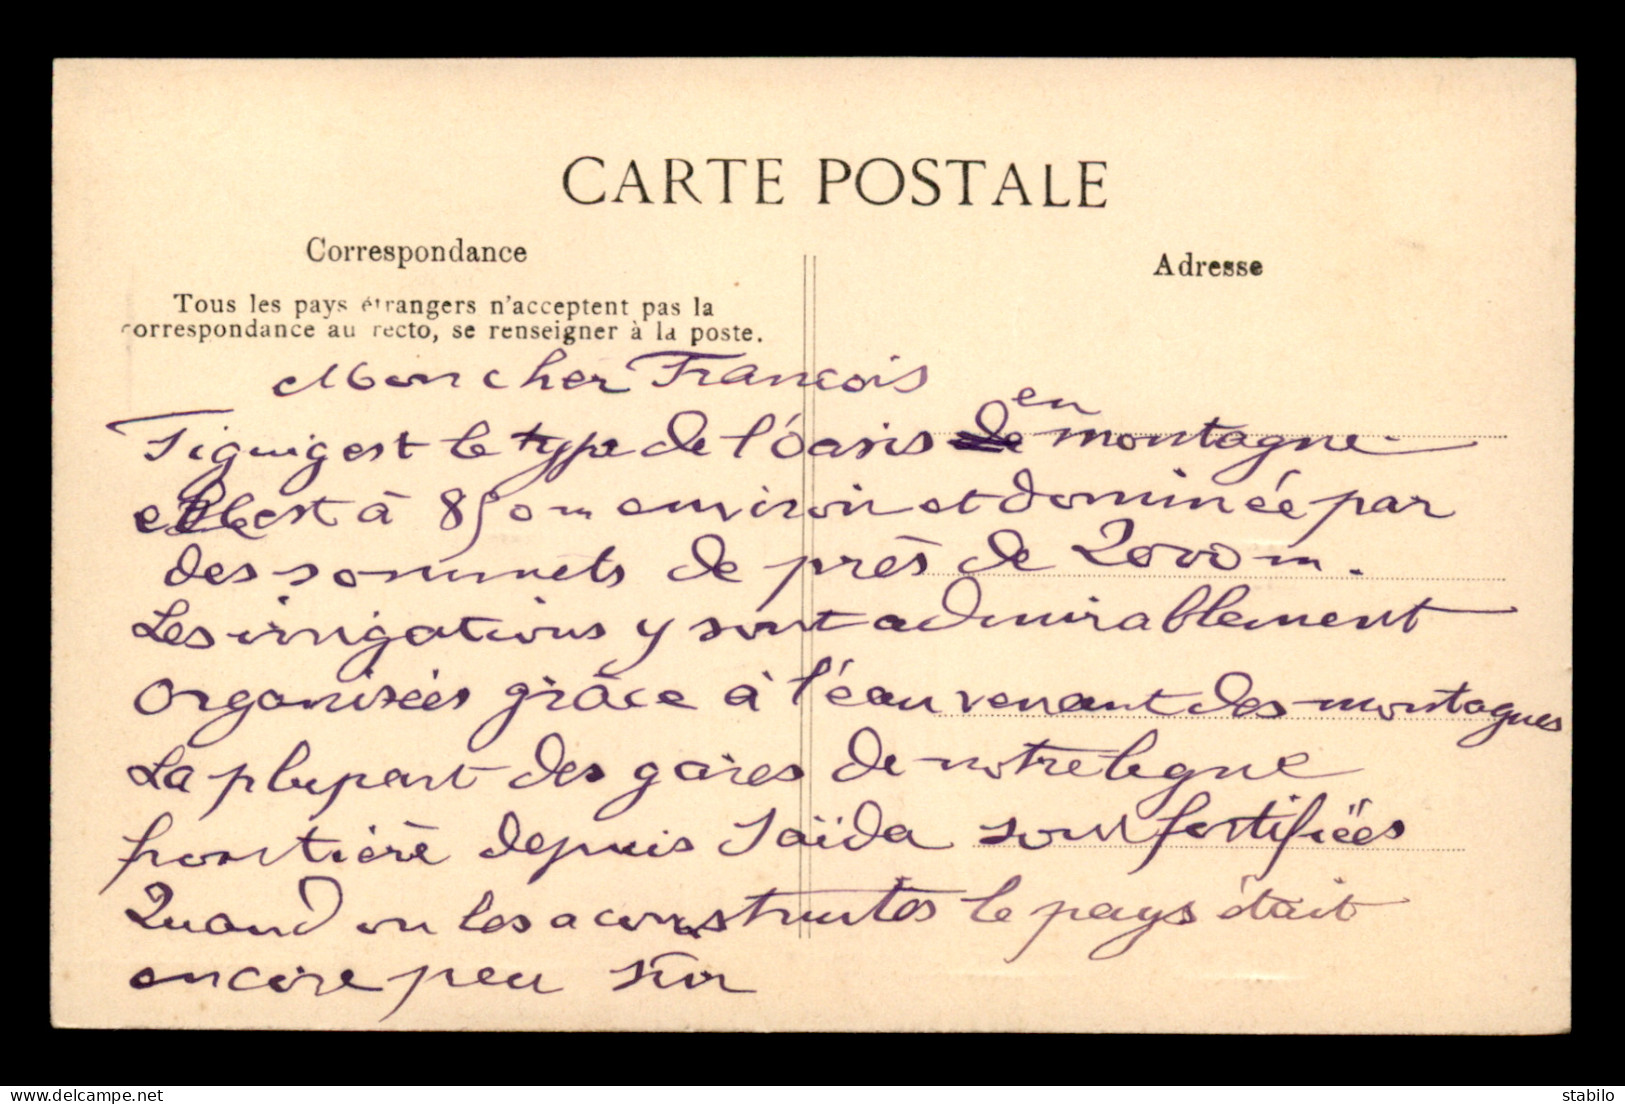 CARTE POSTALE
Correspondance
Adresse
Tous les pays étrangers n'acceptent pas la
correspondance au recto, se renseigner à la poste.
Mon cher François
Figuig est le type de l'oasis en montagne.
elle est à 850 m environ et dominée par
des sommets de près de 2000 m.
Les irrigations y sont admirablement
organisées grâce à l'eau venant des montagnes
La plupart des gares de notre ligne
frontière depuis Saïda sont fortifiées
Quand on les a construites le pays était
encore peu sûr
www.delcampe.net
stabilo